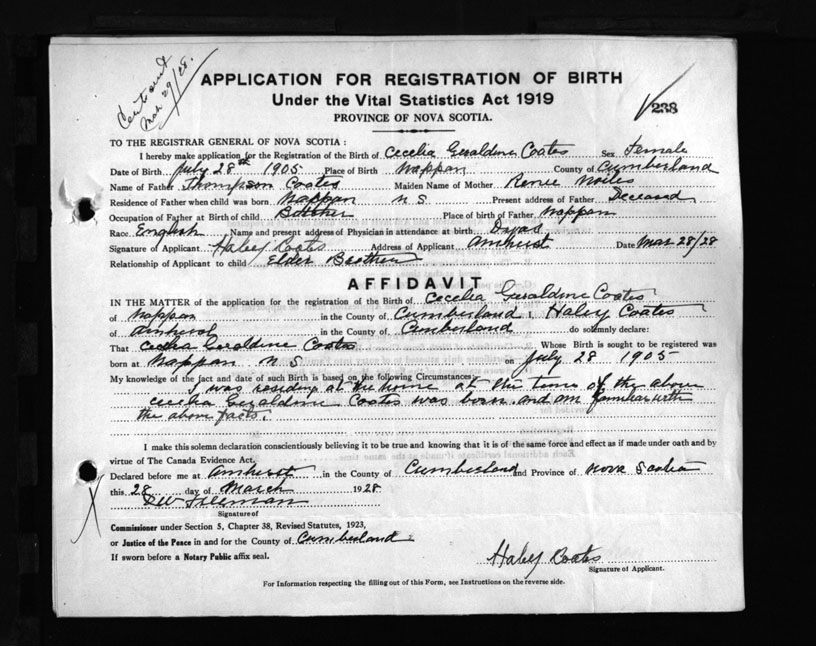 Cert sent
Mar 29/28.
APPLICATION FOR REGISTRATION OF BIRTH
Under the Vital Statistics Act 1919
PROVINCE OF NOVA SCOTIA.
238
TO THE REGISTRAR GENERAL OF NOVA SCOTIA:
I hereby make application for the Registration of the Birth of Cecelia Geraldine Coates Sex Female
Date of Birth July 28th 1905 Place of Birth Nappan County of Cumberland
Name of Father Thompson Coates Maiden Name of Mother Renie
Residence of Father when child was born Nappan N S. Present address of Father Deceased
Occupation of Father at Birth of child Butcher Place of birth of Father Nappan
Race English Name and present address of Physician in attendance at birth
Signature of Applicant Haley Coates Address of Applicant Amherst Date Mar 28/28
Relationship of Applicant to child Elder Brother
AFFIDAVIT
IN THE MATTER of the application for the registration of the Birth of Cecelia Geraldine Coates
of Nappan in the County of Cumberland I, Haley Coates
of Amherst in the County of Cumberland do solemnly declare:
That Cecelia Geraldine Coates Whose Birth is sought to be registered was
born at Nappan N S on July 28 1905
My knowledge of the fact and date of such Birth is based on the following Circumstances:-
I was residing at the home at this time of the above
Cecelia Geraldine Coates was born and am familiar with
the above facts.
I make this solemn declaration conscientiously believing it to be true and knowing that it is of the same force and effect as if made under oath and by
virtue of The Canada Evidence Act.
Declared before me at Amherst in the County of Cumberland and Province of Nova Scotia
this 28 day of March 1928
Signature of
Commissioner under Section 5, Chapter 38, Revised Statutes, 1923,
or Justice of the Peace in and for the County of Cumberland
If sworn before a Notary Public affix seal.
Haley Coates
Signature of Applicant.
For Information respecting the filling out of this Form, see Instructions on the reverse side.